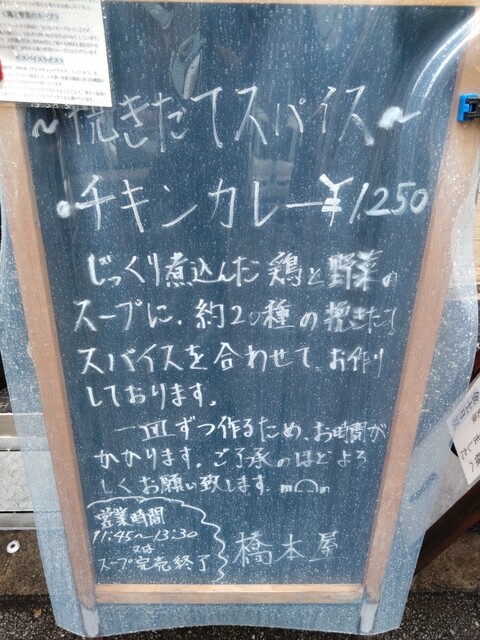 ~挽きたてスパイス~
・チキンカレー¥1,250
じっくり煮込んだ鶏と野菜の
スープに、約20種の挽きたて
スパイスを合わせて、お作り
しております。
一皿ずつ作るため、お時間が
かかります。ご了承のほどよろ
しくお願い致します。m⌒m
営業時間
11:45~13:30
又は
スープ完売終了
橋本屋